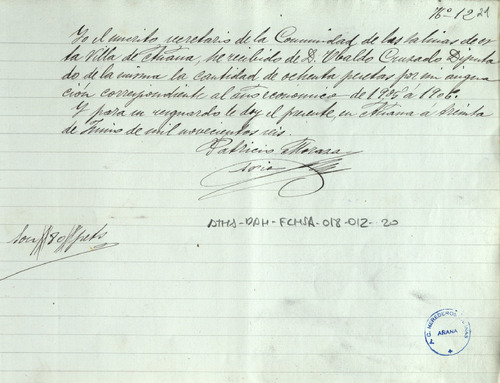 Nº 12 21
Yo el inscrito secretario de la Comunidad de las Salinas de es
ta Villa de Añana, he recibido de D. Ubaldo Cruzado Diputa
do de la misma la cantidad de ochenta pesetas por mi asigna
ción correspondiente al año económico de 1905 á 1906.
Y para su resguardo le doy el presente en Añana a treinta
de Junio de mil novecientos seis
Patricio
Son 80 pets
ATHS-DAH-FCHSA-018-012-20
HEREDEROS
ARANA